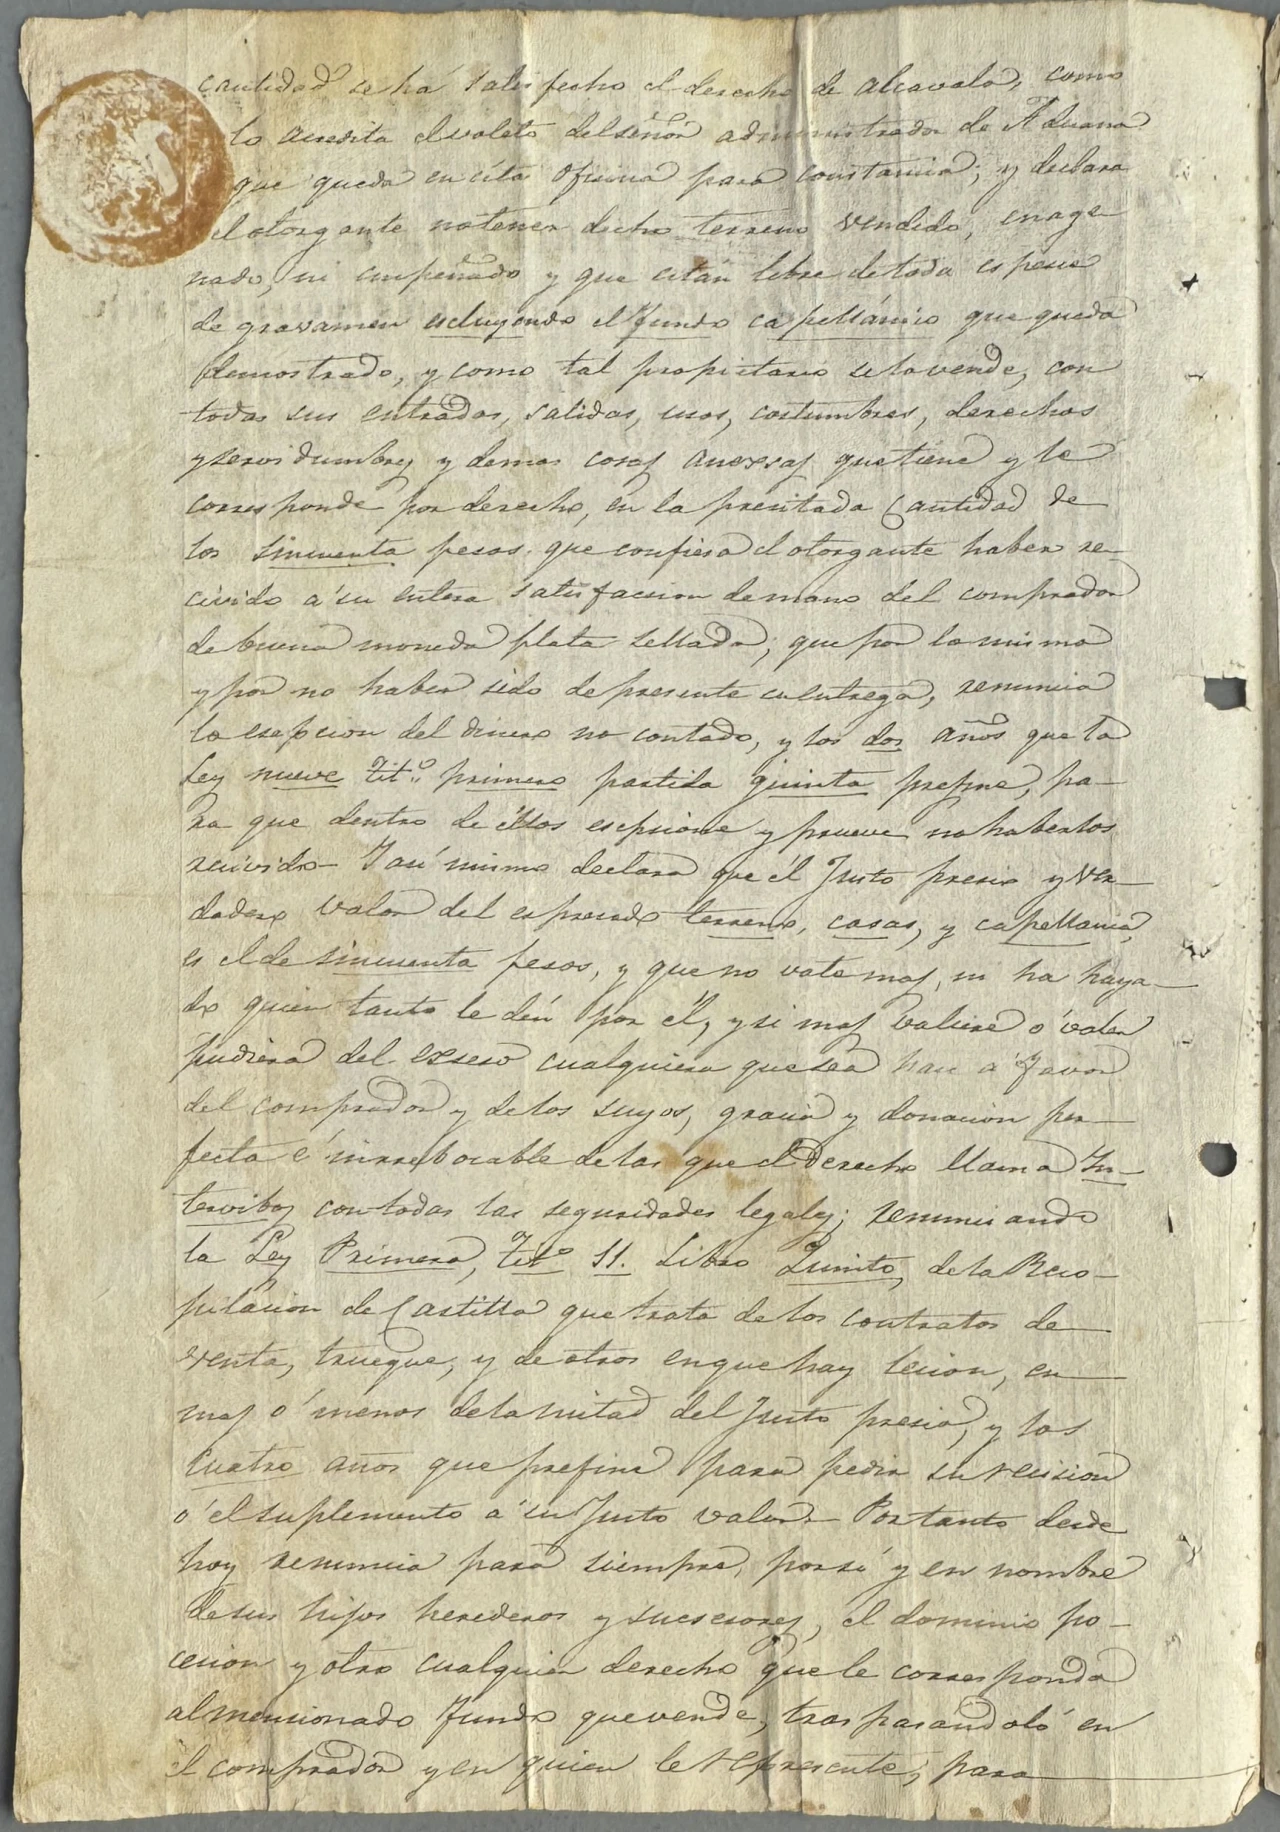 cantidad se há satisfecho el derecho de alcavala, como
lo acredita el voleto del señor administrador de Aduana
que queda en ésta oficina para constancia; y declara
el otorgante no tener dicho terreno vendido, enage-
nado, ni empeñado y que están libre de toda especie
de gravamen escluyendo el fundo capellánico que queda
demostrado, y como tal propietario se lo vende, con
todas sus entradas, salidas, usos, costumbres, derechos
y servidumbres y demas cosas anexsas que tiene y le
corresponde por derecho, en la presitada Cantidad de
los sincuenta pesos que confiesa el otorgante haber re-
civido á su entera satisfaccion de mano del comprador
de buena moneda plata sellada; que por lo mismo
y por no haber sido de presente su entrega, renuncia
la esepcion del dinero no contado, y los dos años que la
Ley nueve titº primero partida quinta prefine, pa-
ra que dentro de éllos escepcione y prueve no haberlos
recivido- Y asi mismo declara que él Justo presio y ver-
dadero valor del espresado terreno, casas, y capellania,
es el de sincuenta pesos, y que no vale mas, ni ha haya-
do quien tanto le dén por él, y si mas valiere ó valer
pudiera del exseso cualquiera que sea hace á favor
del comprador y de los suyos, gracia y donacion per-
fecta é inrrebocable de las que el derecho llama In-
tervibos con todas las seguridades legales; renunciando
la Ley Primera, Titº 11. Libro Quinto, de la Reco-
pilacion de Castilla que trata de los contratos de
venta, trueque, y de otros en que hay lecion, en
mas ó menos de la mitad del Justo presio, y los
cuatro años que prefine para pedir su recision
ó el suplemento á su Justo valor.- Por tanto desde
hoy renuncia para siempre, por sí y en nombre
de sus hijos herederos y sucesores, el dominio po-
cecion y otro cualquier derecho que le corresponda
al mencionado fundo que vende, traspasandoló en
él comprador y en quien le represente, para